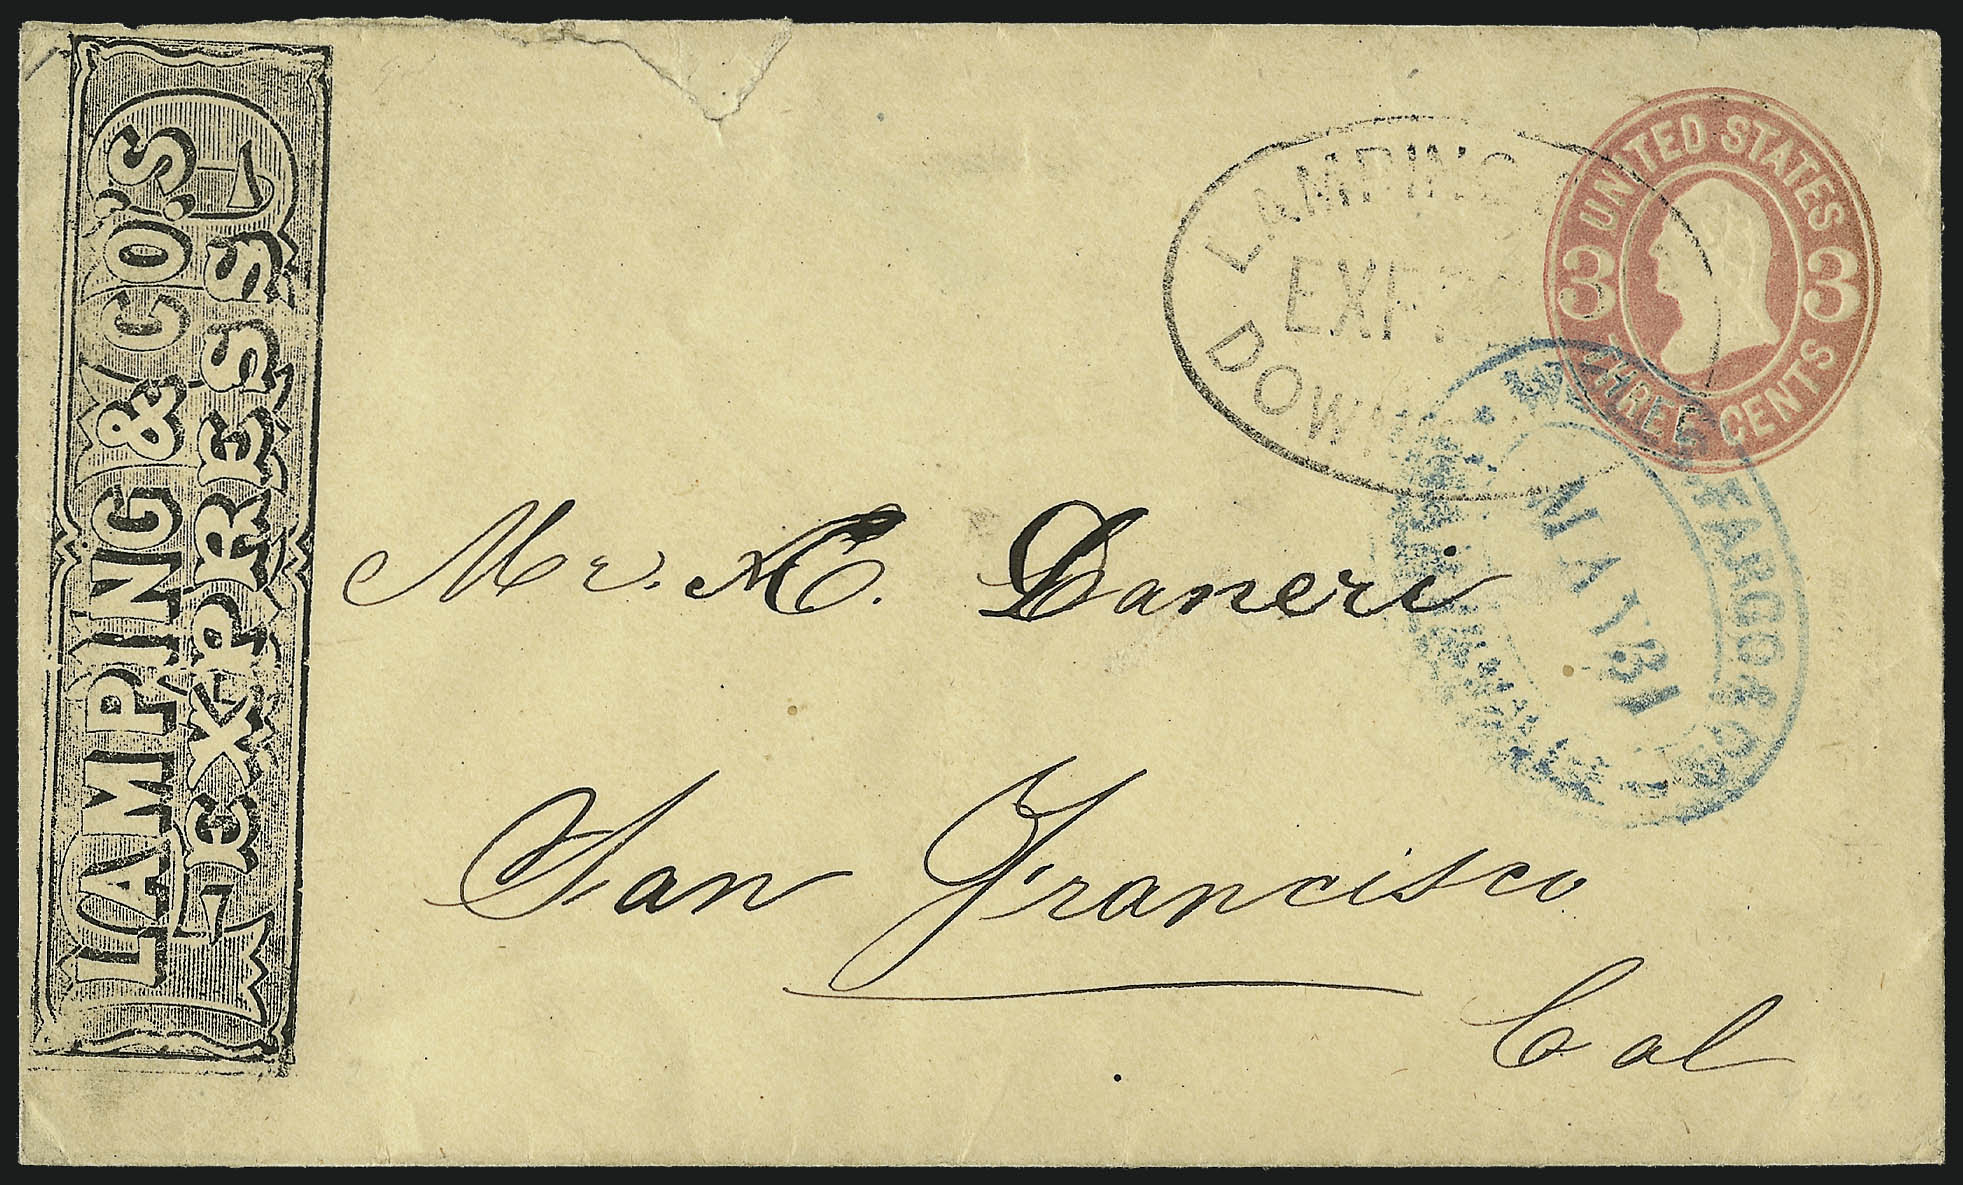 LAMPING & CO.'S
EXPRESS
LAMPING
DOWN
UNITED STATES
3 3
THREE CENTS
FARGO & CO
MAY 31
Mr. Daneri
San Francisco
Cal